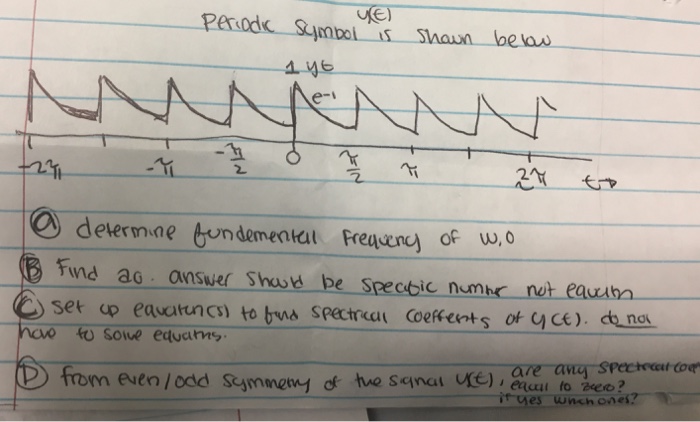 y(t)
Periodic Symbol is shown below
1 yt
e-1
-2π -π -π/2 0 π/2 π 2π t→
(a) determine fundemental frequency of w,0
(B) Find a0. answer should be specific number not equatn
(C) Set up equation(s) to find spectrical coeffents of y(t). do not
have to solve equatns.
(D) from even/odd symmetry of the signal y(t), are any spectrcal coef
equal to zero?
if yes which ones?